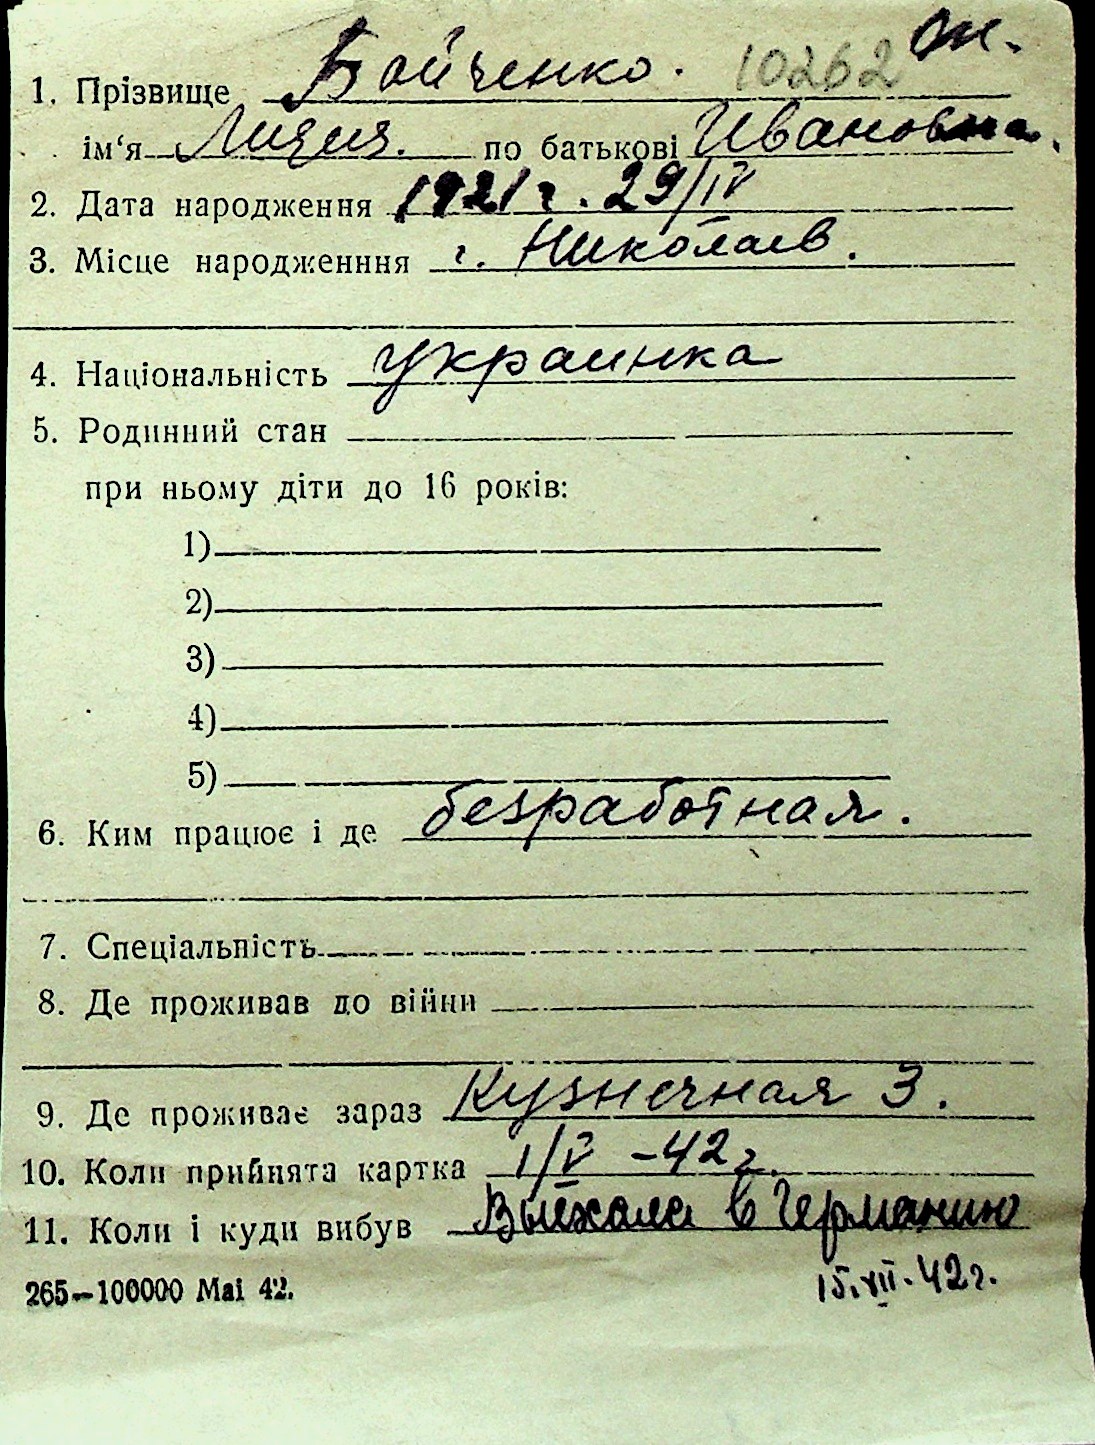 1. Прізвище Бойченко. 10262 Ж.
ім'я Лидия. по батькові Ивановна.
2. Дата народження 1921 г. 29/IV
3. Місце народженння г. Николаев.
4. Національність украинка
5. Родинний стан
при ньому діти до 16 років:
1)
2)
3)
4)
5)
6. Ким працює і де безработная.
7. Спеціальність
8. Де проживав до війни
9. Де проживає зараз Кузнечная 3.
10. Коли прийнята картка 1/V -42 г.
11. Коли і куди вибув Выехала в Германию
265—100000 Mai 42. 15.VII.42 г.